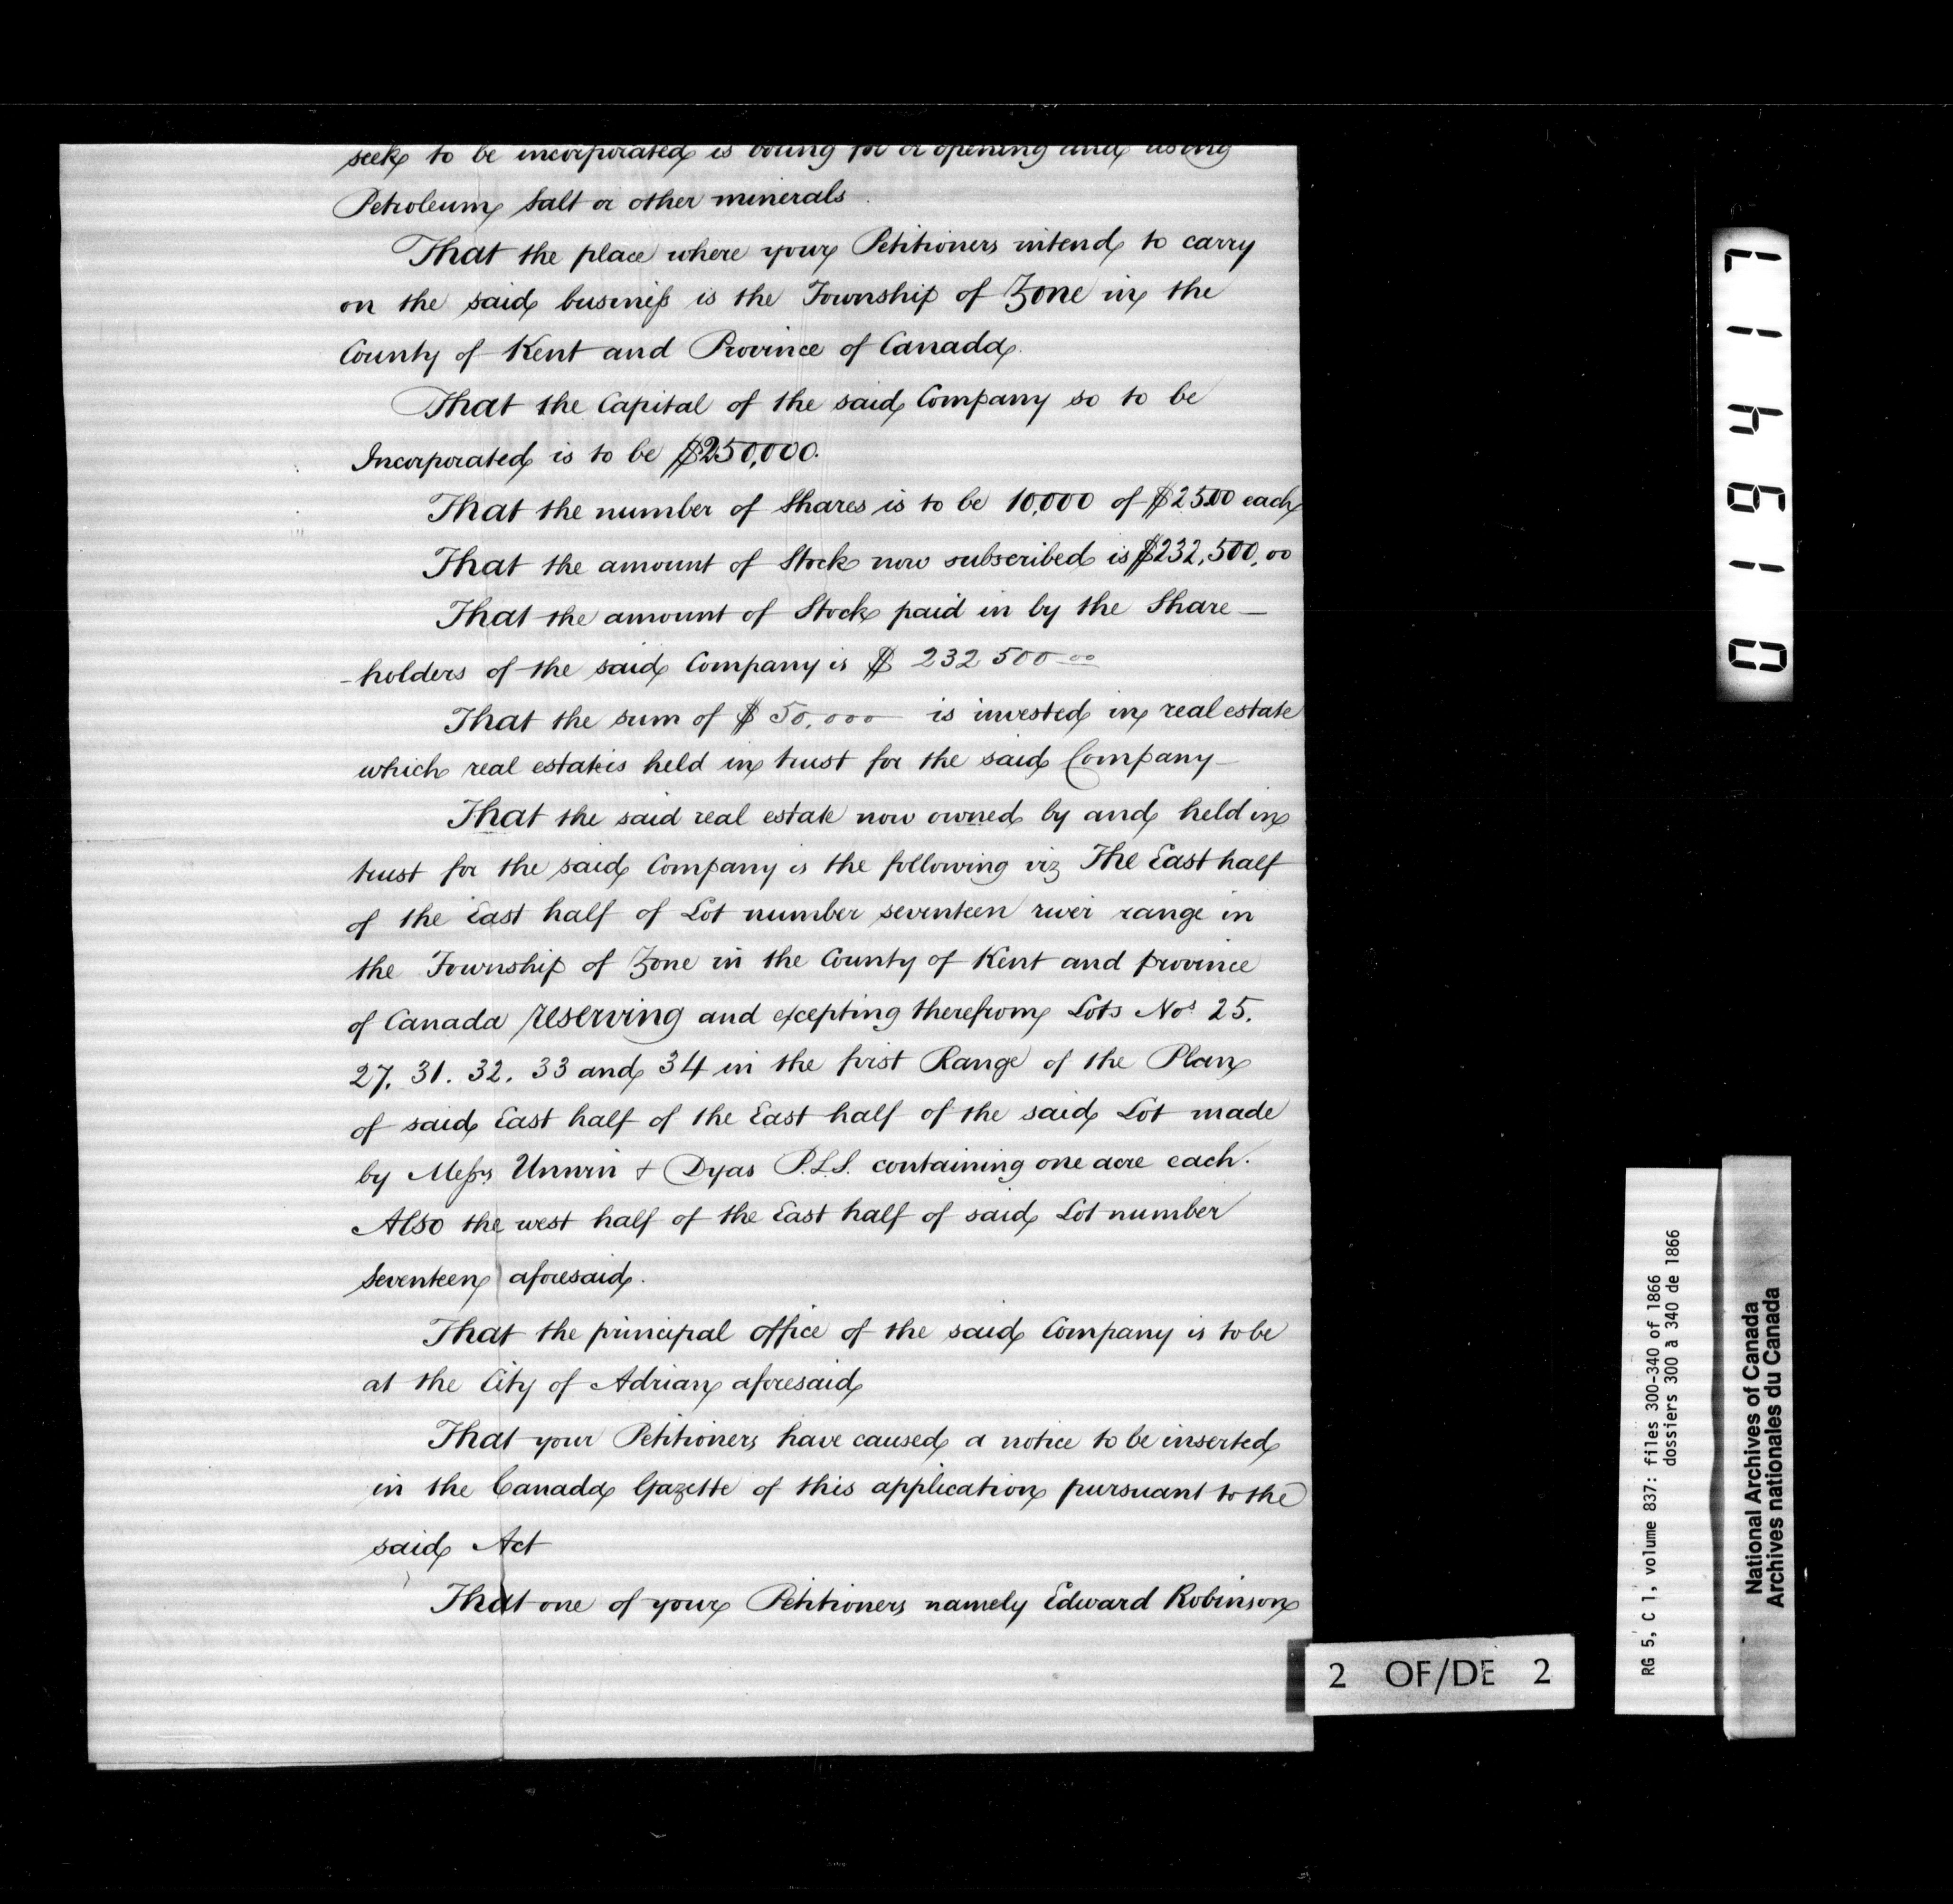 seek to be incorporated is boring for or opening and using
Petroleum Salt or other minerals.
That the place where your Petitioners intend to carry
on the said business is the Township of Zone in the
County of Kent and Province of Canada.
That the Capital of the said Company so to be
Incorporated is to be $250,000.
That the number of Shares is to be 10,000 of $25.00 each
That the amount of Stock now subscribed is $232,500.00
That the amount of Stock paid in by the Share-
-holders of the said Company is $ 232,500 00
That the sum of $ 50,000 is invested in real estate
which real estate is held in trust for the said Company
That the said real estate now owned by and held in
trust for the said Company is the following viz The East half
of the East half of Lot number seventeen river range in
the Township of Zone in the County of Kent and province
of Canada reserving and excepting therefrom Lots Nos 25.
27. 31. 32. 33 and 34 in the first Range of the Plan
of said East half of the East half of the said Lot made
by Messrs Unwin & Dyas P.L.S. containing one acre each.
Also the west half of the East half of said Lot number
Seventeen aforesaid.
That the principal office of the said Company is to be
at the City of Adrian aforesaid
That your Petitioners have caused a notice to be inserted
in the Canada Gazette of this application pursuant to the
said Act
That one of your Petitioners namely Edward Robinson
2 OF/DE 2
0 1 6 4 1 7
RG 5, C 1, volume 837: files 300-340 of 1866
dossiers 300 à 340 de 1866
National Archives of Canada
Archives nationales du Canada